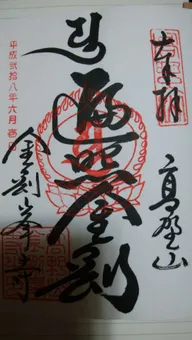 奉拝
高野山
遍照金剛
平成弐拾八年六月壱日
金剛峯寺